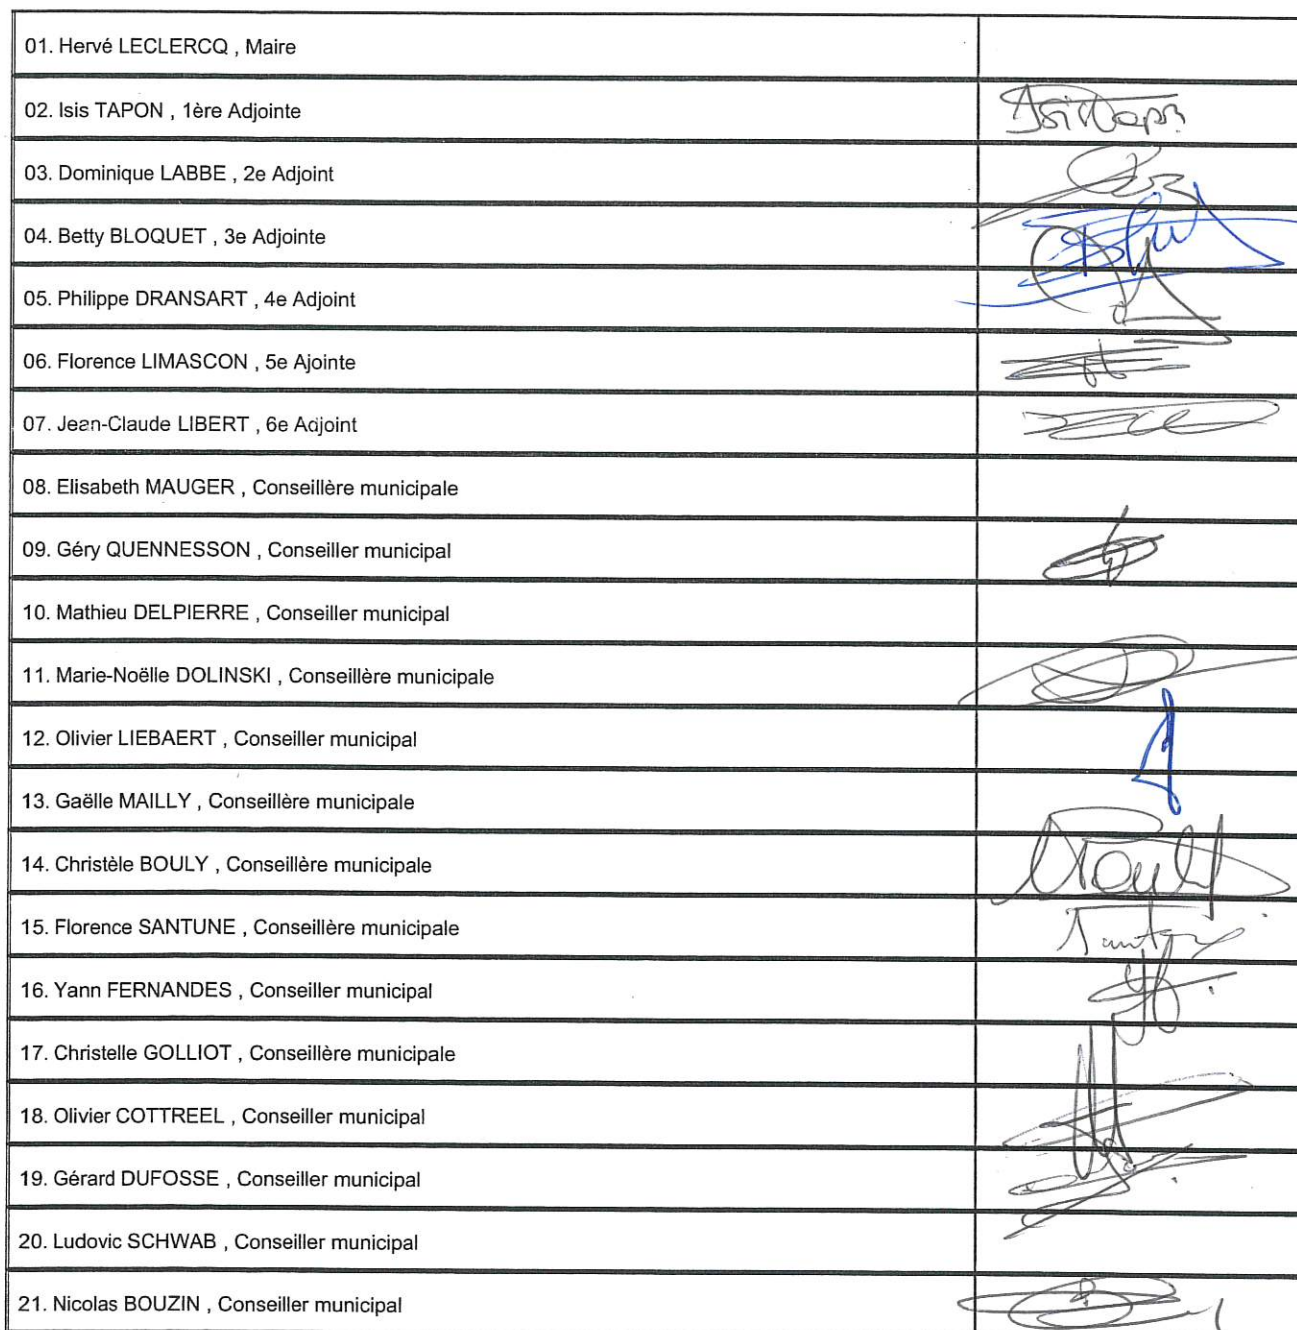 01. Hervé LECLERCQ , Maire
02. Isis TAPON , 1ère Adjointe
03. Dominique LABBE , 2e Adjoint
04. Betty BLOQUET , 3e Adjointe
05. Philippe DRANSART , 4e Adjoint
06. Florence LIMASCON , 5e Ajointe
07. Jean-Claude LIBERT , 6e Adjoint
08. Elisabeth MAUGER , Conseillère municipale
09. Géry QUENNESSON , Conseiller municipal
10. Mathieu DELPIERRE , Conseiller municipal
11. Marie-Noëlle DOLINSKI , Conseillère municipale
12. Olivier LIEBAERT , Conseiller municipal
13. Gaëlle MAILLY , Conseillère municipale
14. Christèle BOULY , Conseillère municipale
15. Florence SANTUNE , Conseillère municipale
16. Yann FERNANDES , Conseiller municipal
17. Christelle GOLLIOT , Conseillère municipale
18. Olivier COTTREEL , Conseiller municipal
19. Gérard DUFOSSE , Conseiller municipal
20. Ludovic SCHWAB , Conseiller municipal
21. Nicolas BOUZIN , Conseiller municipal